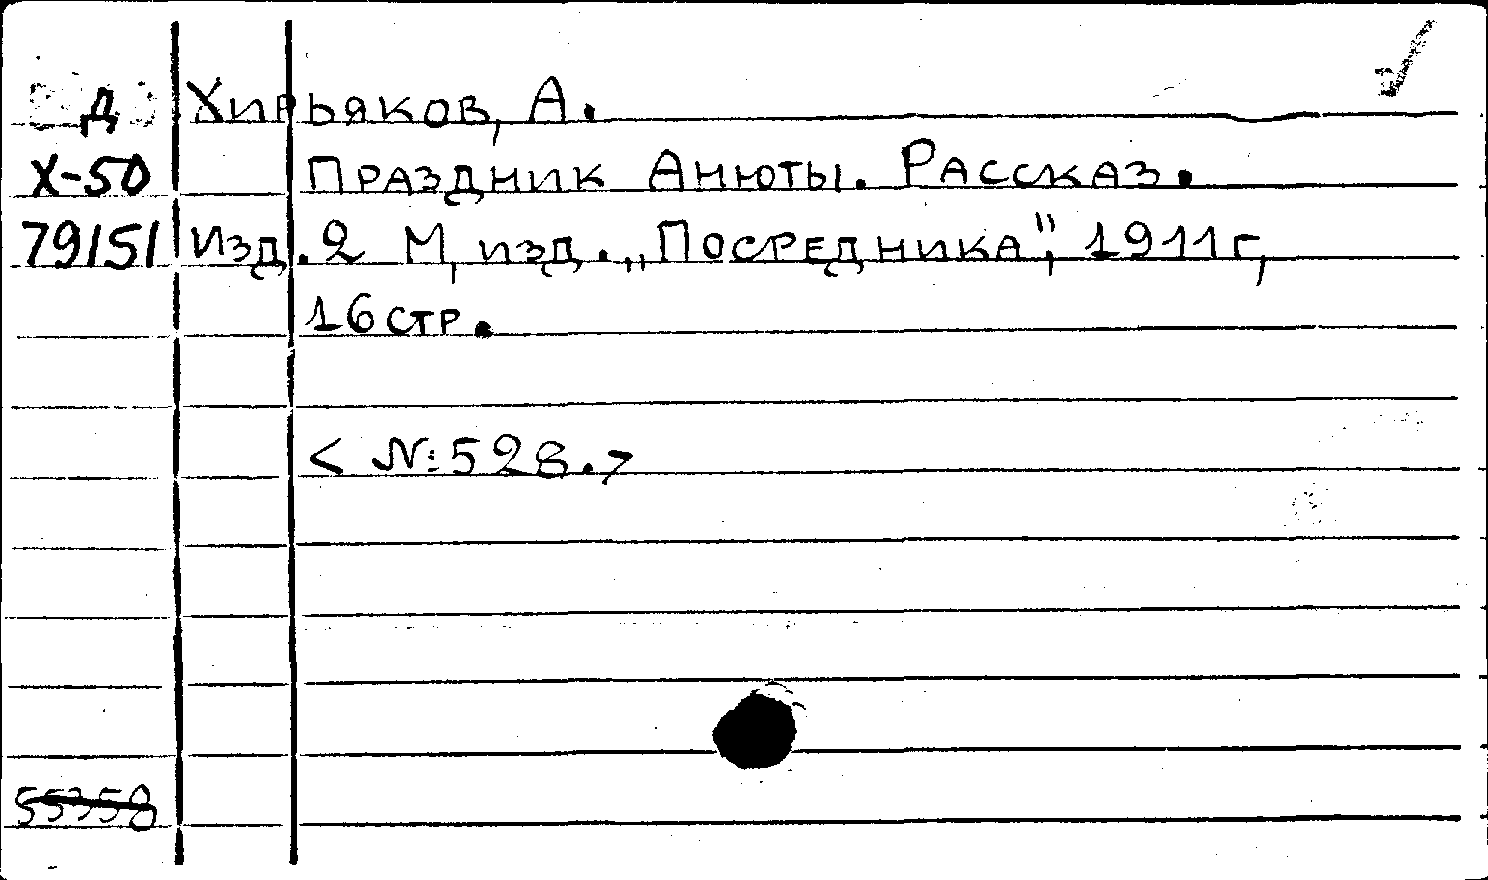 Д Хирьяков, А.
Х-50 Праздник Анюты. Рассказ.
79151 Изд. 2 М, изд. „Посредника", 1911г,
16 стр.
< №: 528. >
55358